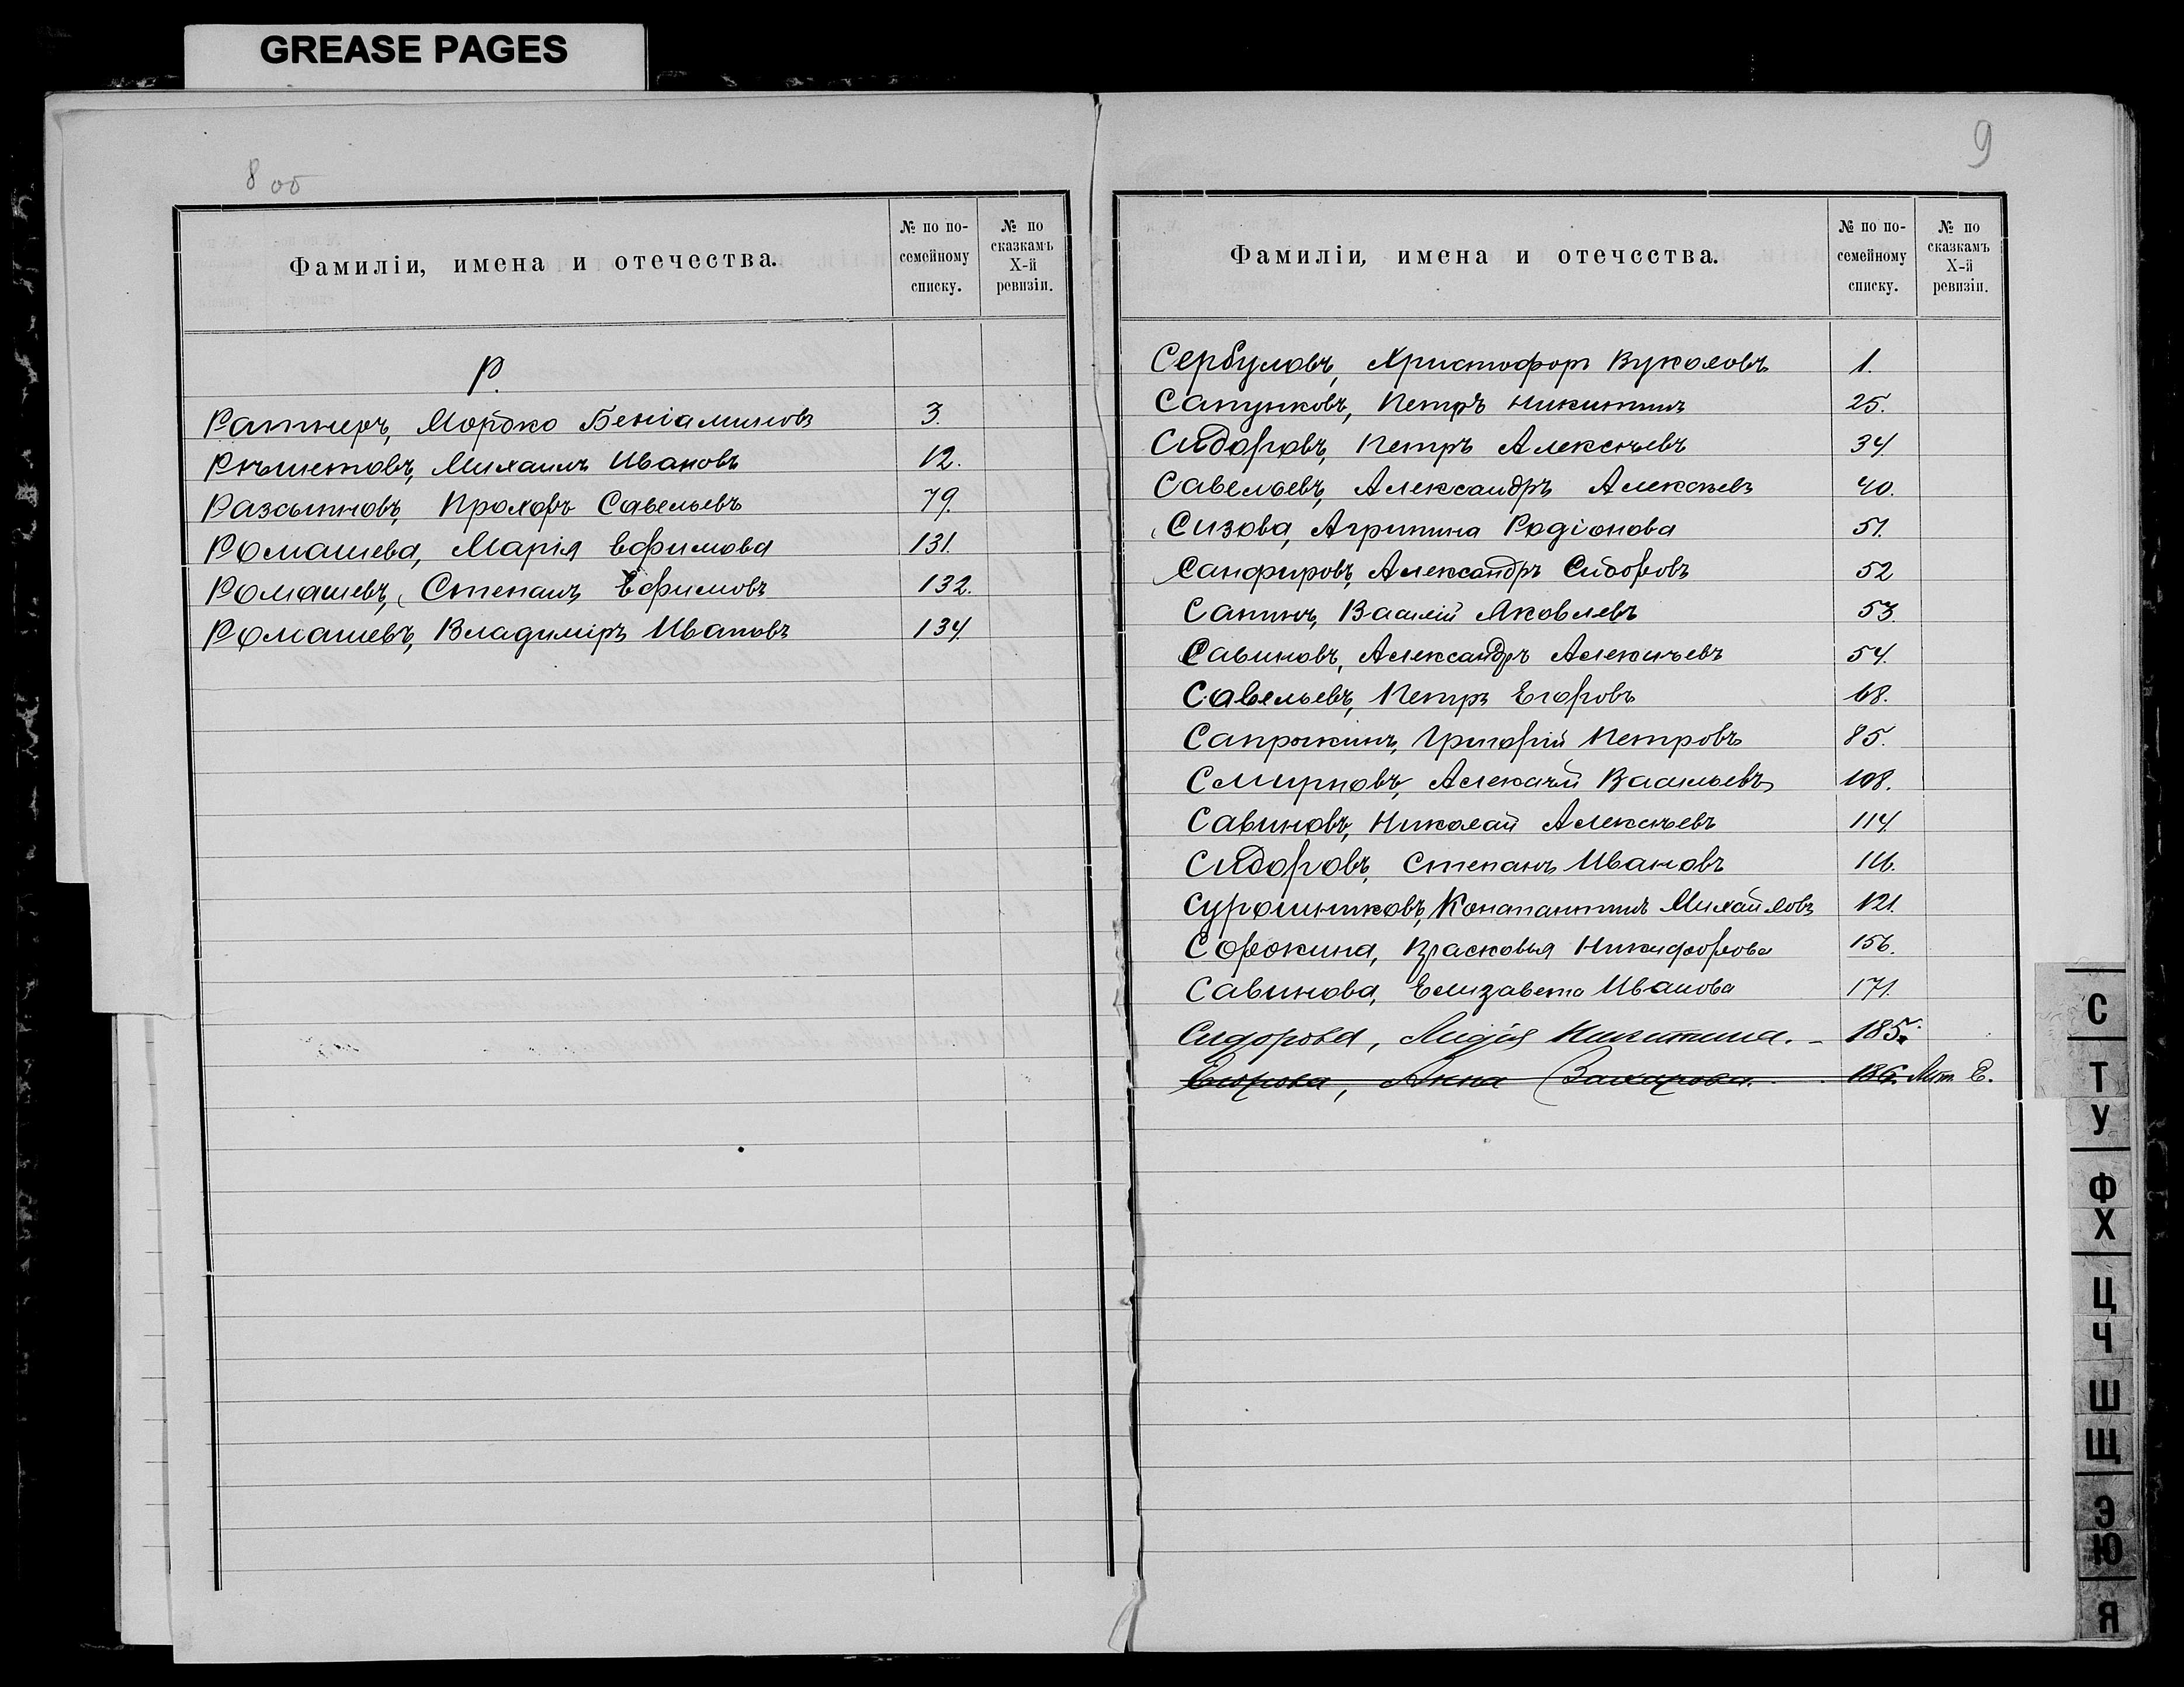 GREASE PAGES
8 об
Фамиліи, имена и отечества.
№ по по-
семейному
списку.
№ по
сказкамъ
X-й
ревизіи.
Р.
Ратнеръ, Мордко Беніаминовъ 3.
Рѣшетовъ, Михаилъ Ивановъ 12.
Разсыпновъ, Прохоръ Савельевъ 79.
Ромашева, Марія Ефимова 131.
Ромашевъ, Степанъ Ефимовъ 132.
Ромашевъ, Владиміръ Ивановъ 134.
9
Фамиліи, имена и отечества.
№ по по-
семейному
списку.
№ по
сказкамъ
X-й
ревизіи.
Сербуловъ, Христофоръ Вуколовъ 1.
Сапунковъ, Петръ Никитинъ 25.
Сидоровъ, Петръ Алексѣевъ 34.
Савельевъ, Александръ Алексѣевъ 40.
Сизова, Агрипина Родіонова 51.
Санфировъ, Александръ Сидоровъ 52
Сапинъ, Василій Яковлевъ 53.
Савиновъ, Александръ Алексѣевъ 54.
Савельевъ, Петръ Егоровъ 68.
Сапрыкинъ, Григорій Петровъ 85.
Смирновъ, Алексѣй Васильевъ 108.
Савиновъ, Николай Алексѣевъ 114.
Сидоровъ, Степанъ Ивановъ 116.
Сурошниковъ, Константинъ Михайловъ 121.
Сорокина, Прасковья Никифорова 156.
Савинова, Елизавета Иванова 171.
Сидорова, Лидія Никитина. - 185.
Егорова, Анна Захарова. 186. Лит. Е.
С
Т
У
Ф
Х
Ц
Ч
Ш
Щ
Э
Ю
Я